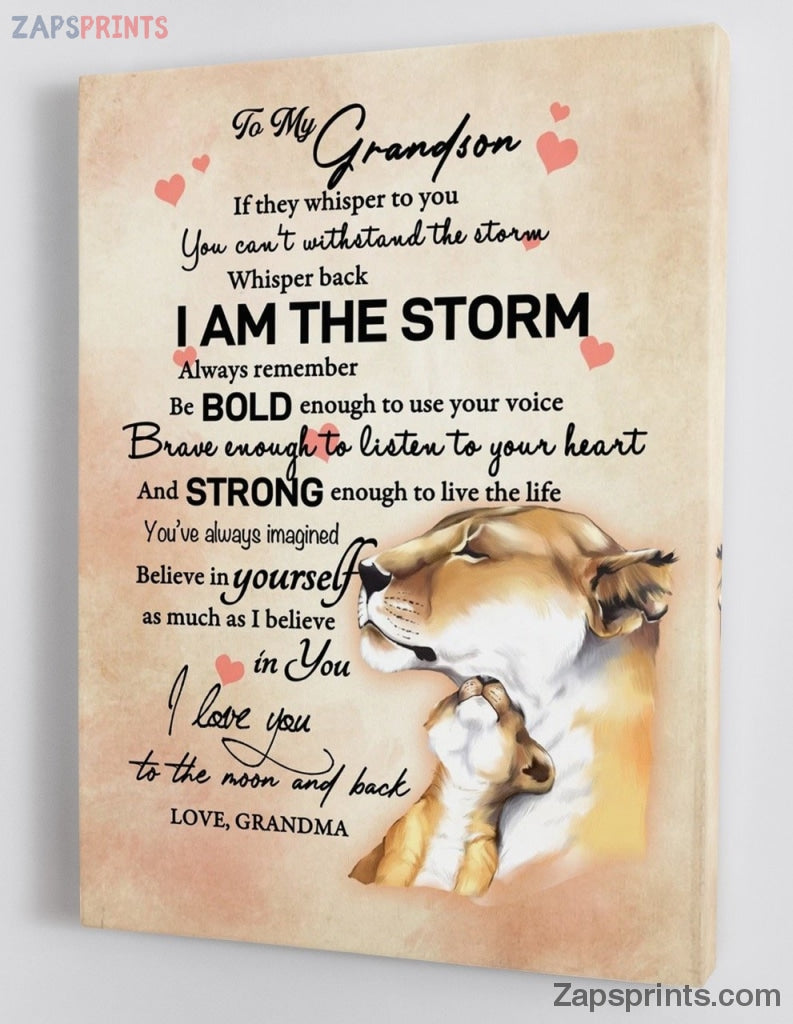 ZAPSPRINTS
To My Grandson
If they whisper to you
You can't withstand the storm
Whisper back
I AM THE STORM
Always remember
Be BOLD enough to use your voice
Brave enough to listen to your heart
And STRONG enough to live the life
You've always imagined
Believe in yourself
as much as I believe
in You
I love you
to the moon and back
LOVE, GRANDMA
Zapsprints.com